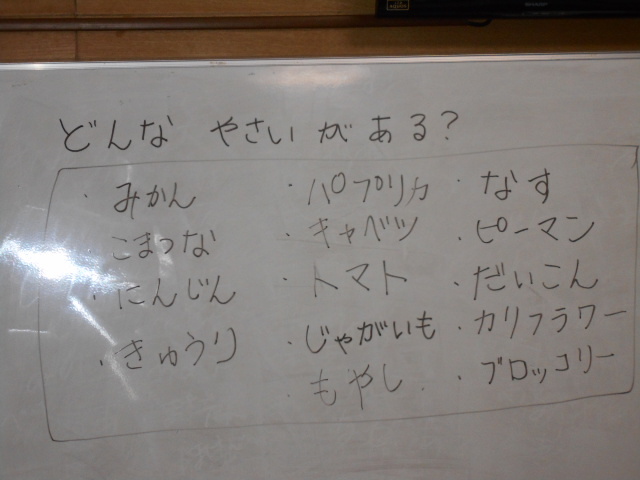 どんな やさいがある?
・みかん
こまつな
・にんじん
・きゅうり
・パプリカ
・キャベツ
・トマト
・じゃがいも
・もやし
・なす
・ピーマン
・だいこん
・カリフラワー
・ブロッコリー